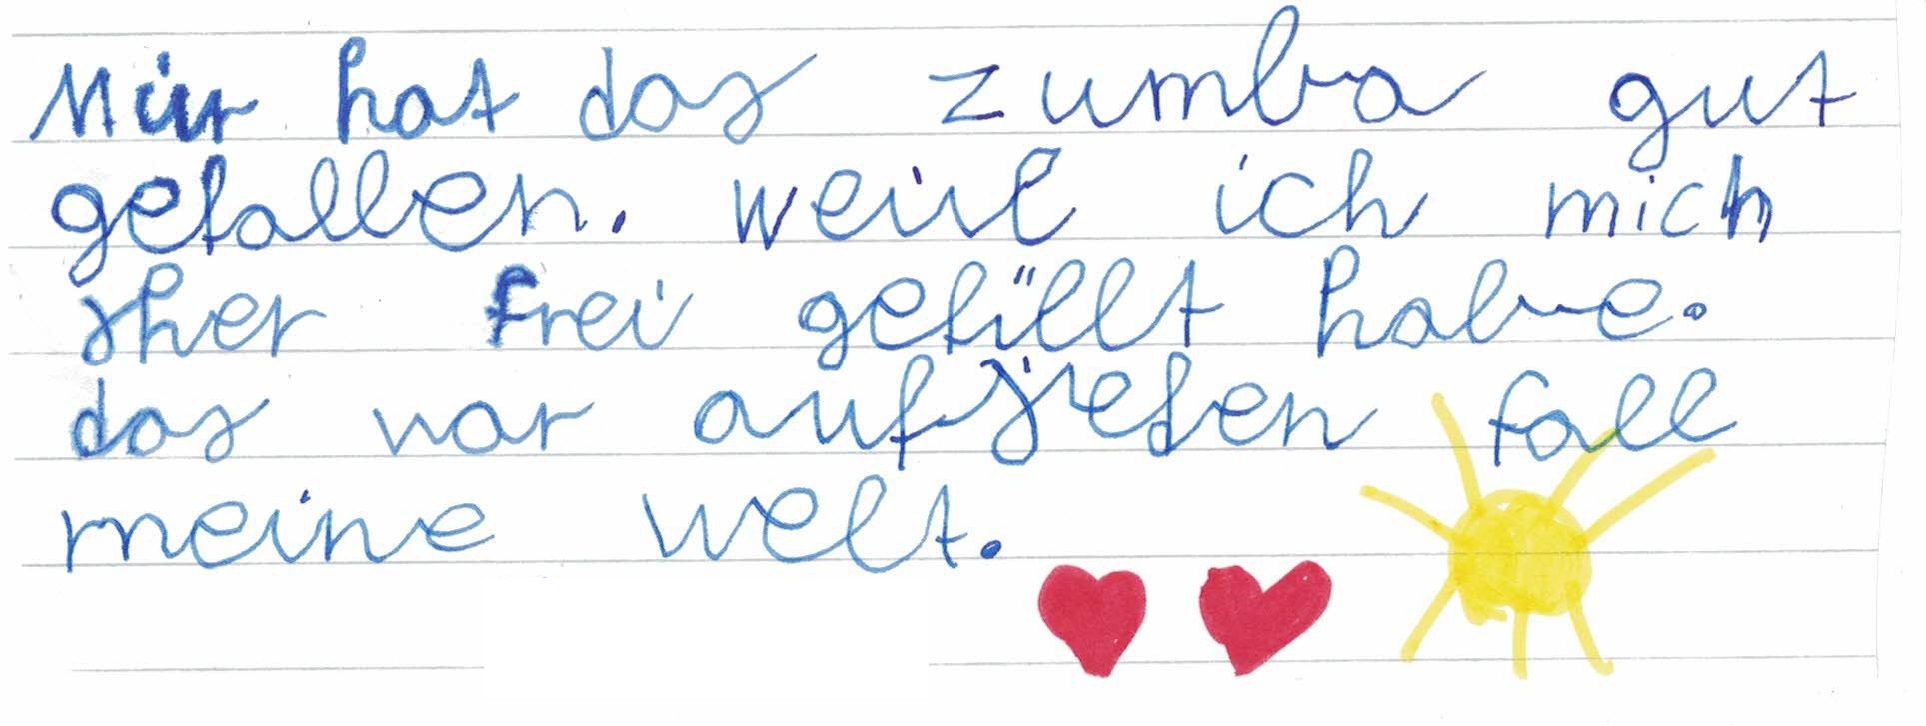 Mir hat das zumba gut
gefallen. weil ich mich
sher frei gefüllt habe.
das war auf jeden fall
meine welt.